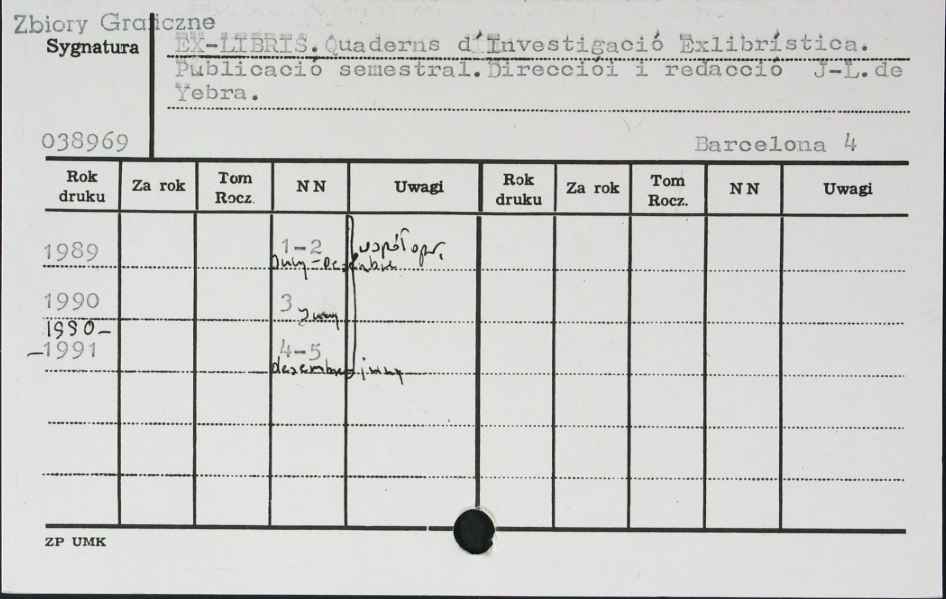 Zbiory Graficzne
Sygnatura
EX-LIBRIS. Quaderns d'Investigació Exlibrística.
Publicació semestral. Direcciói i redacció J-L. de
Yebra.
038969 Barcelona 4
Rok druku Za rok Tom Rocz. N N Uwagi Rok druku Za rok Tom Rocz. N N Uwagi
1989 1-2 współopr.
Juny-dezembre
1990 3 Juny
1990-
-1991 4-5
dezembre-juny
ZP UMK